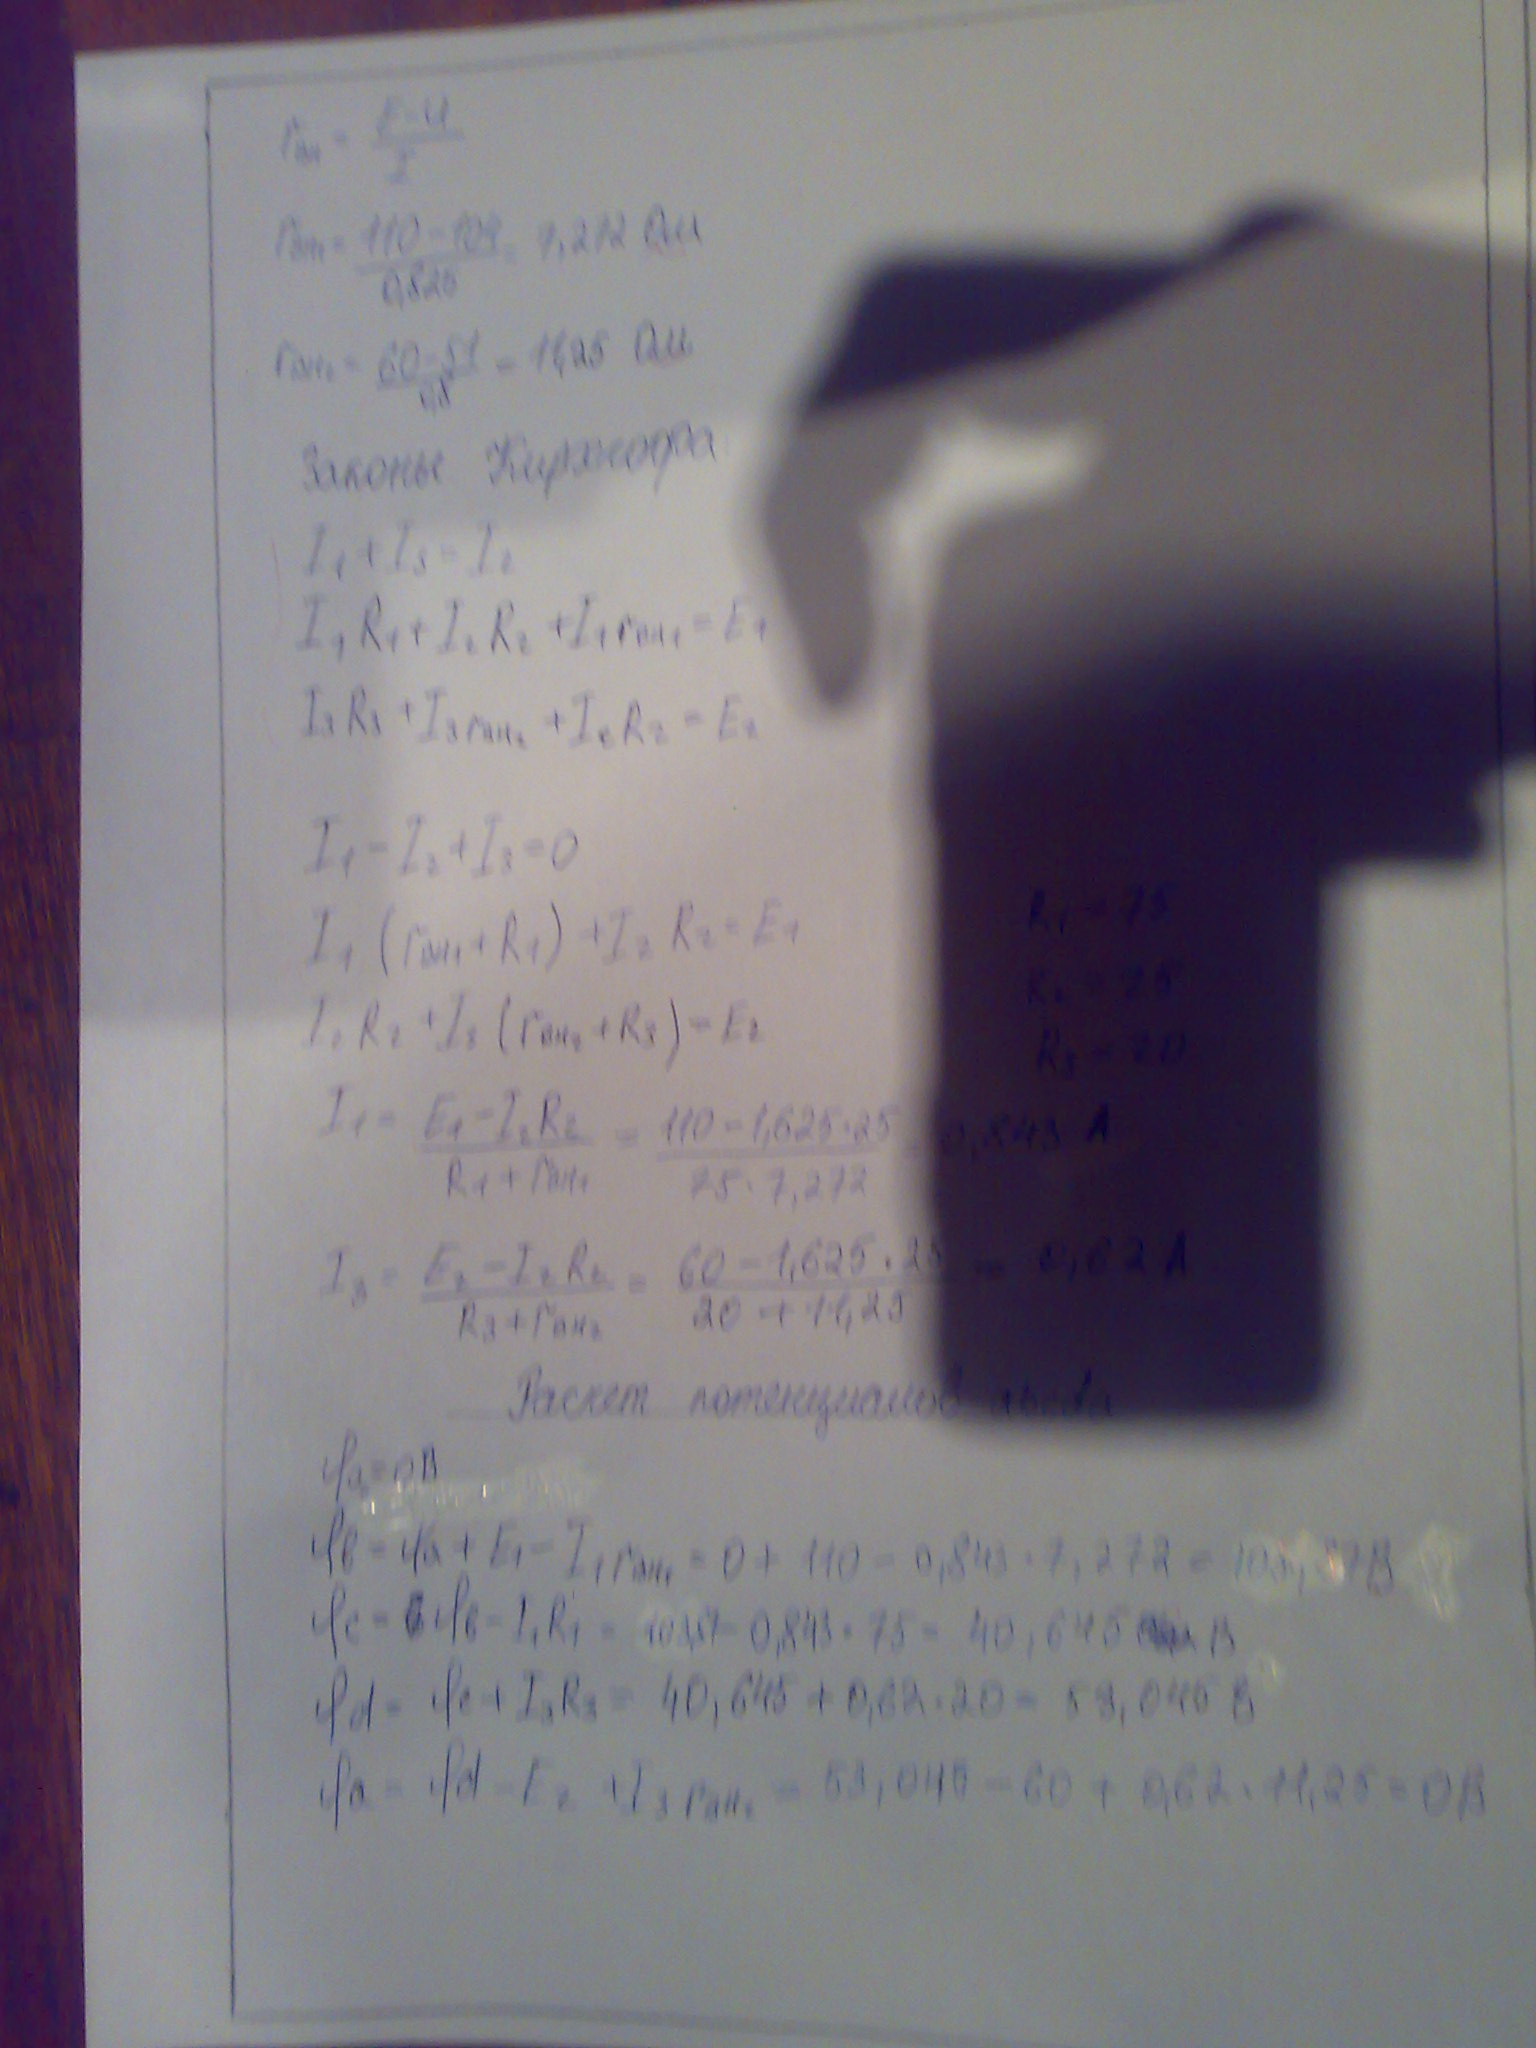 rвн = E-U / I
rвн₁ = 110-104 / 0,825 = 7,272 Ом
rвн₂ = 60-51 / 0,8 = 11,25 Ом
Законы Кирхгофа
I₁ + I₃ = I₂
I₁R₁ + I₂R₂ + I₁rвн₁ = E₁
I₃R₃ + I₃rвн₂ + I₂R₂ = E₂
I₁ - I₂ + I₃ = 0
I₁(rвн₁ + R₁) + I₂R₂ = E₁
R₁ = 75
R₂ = 25
I₂R₂ + I₃(rвн₂ + R₃) = E₂
R₃ = 20
I₁ = E₁ - I₂R₂ / R₁ + rвн₁ = 110 - 1,625·25 / 75·7,272 = 0,843 А
I₃ = E₂ - I₂R₂ / R₃ + rвн₂ = 60 - 1,625·25 / 20 + 11,25 = 0,62 А
Расчет потенциалов
φa = 0В
φb = φa + E₁ - I₁rвн₁ = 0 + 110 - 0,843·7,272 = 103,87В
φc = φb - I₁R₁ = 103,87 - 0,843·75 = 40,645 В
φd = φc + I₃R₃ = 40,645 + 0,62·20 = 53,045 В
φa = φd - E₂ + I₃rвн₂ = 53,045 - 60 + 0,62·11,25 = 0В